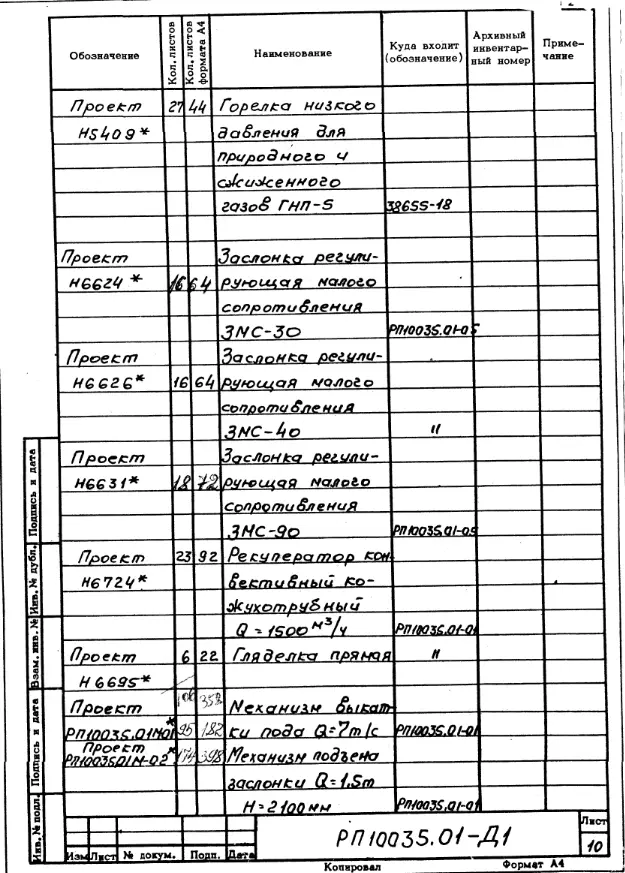 Обозначение Кол. листов Кол. листов формата А4 Наименование Куда входит (обозначение) Архивный инвентар-ный номер Приме-чание
Проект 27 44 Горелка низкого
Н5409* давления для
природного и
сжиженного
газов ГНП-5 38655-18
Проект Заслонка регули-
Н6624* 16 64 рующая малого
сопротивления
ЗМС-30 РП10035.01-05
Проект Заслонка регули-
Н6626* 16 64 рующая малого
сопротивления
ЗМС-40 "
Проект Заслонка регули-
Н6631* 18 72 рующая малого
сопротивления
ЗМС-90 РП10035.01-05
Проект 23 92 Рекуператор кон-
Н6724* вективный ко-
жухотрубный
Q=1500 м³/ч РП10035.01-01
Проект 6 22 Гляделка прямая "
Н6695*
Проект Механизм выкат-
РП10035.01М01* 95 182 ки пода Q=7т/с РП10035.01-01
Проект Механизм подъема
РП10035.01М-02* 398
заслонки Q=1,5т
Н=2100мм РП10035.01-01
Инв. № подл. Подпись и дата Взам. инв. № Инв. № дубл. Подпись и дата
Изм Лист № докум. Подп. Дата
РП10035.01-Д1
Лист
10
Копировал Формат А4